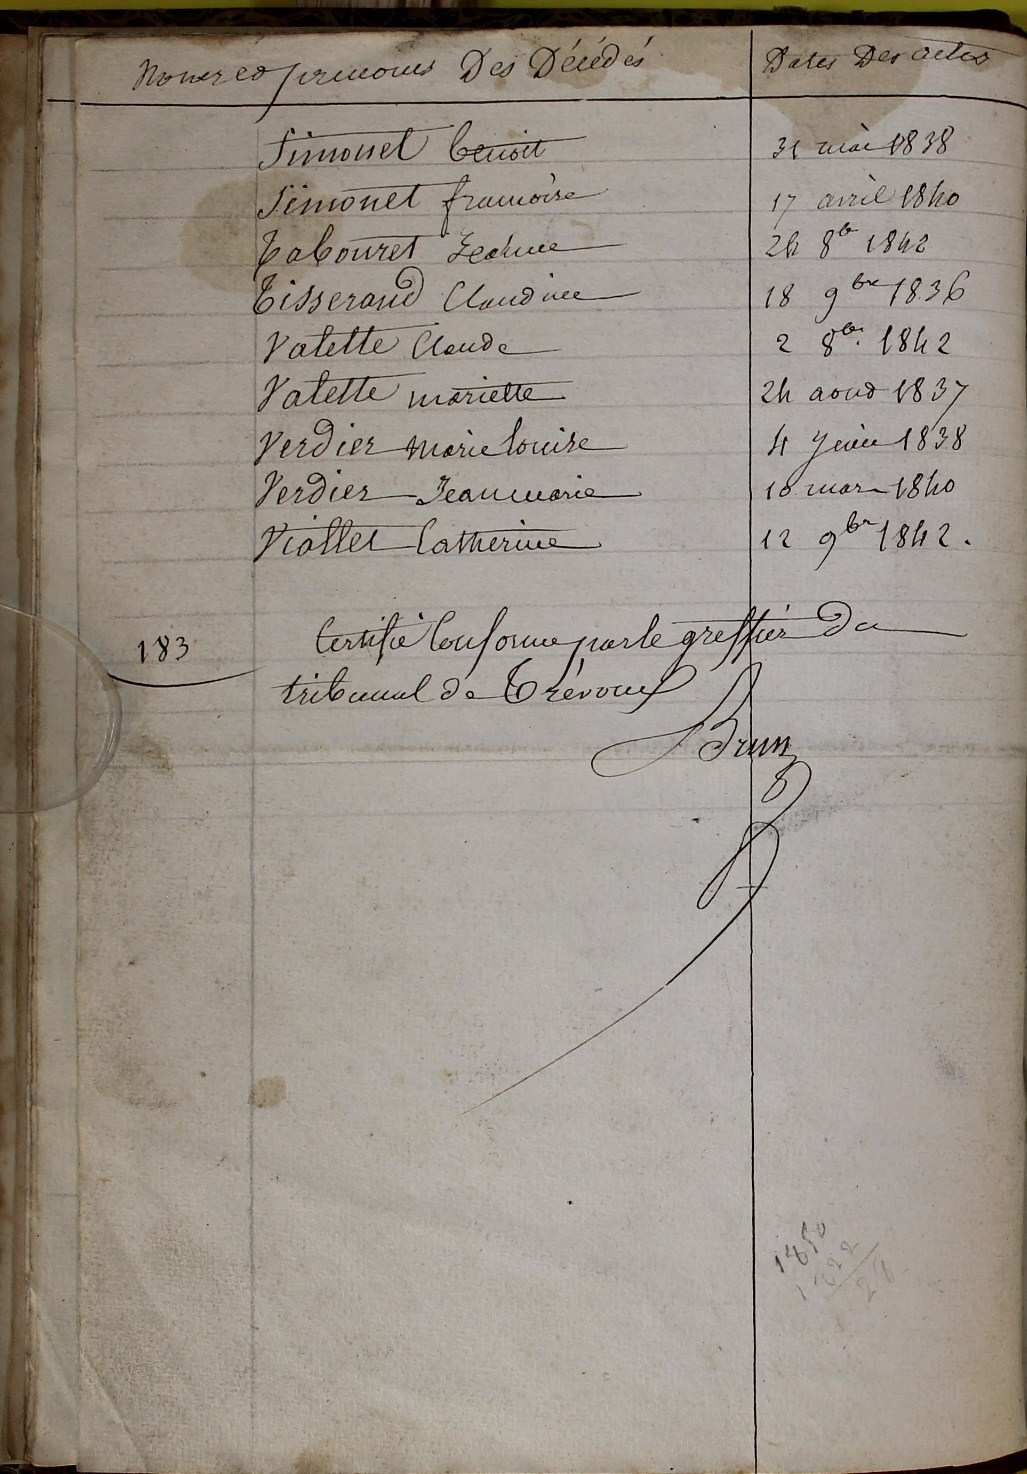 Noms et prenoms Des Décédés Dates Des actes
Simonet benoit 31 mai 1838
Simonet francoise 17 avril 1840
Tabouret Jeanne 24 8b 1842
Tisserand Claudine 18 9bre 1836
Valette Claude 2 8b. 1842
Valette mariette 24 aoud 1837
Verdier marie louise 4 1838
Verdier Jean marie 10 mars 1840
Viallet Catherine 12 9br 1842.
183 Certifié Conforme par le greffier du
tribunal de Trévoux
Brun
1850
1822
28